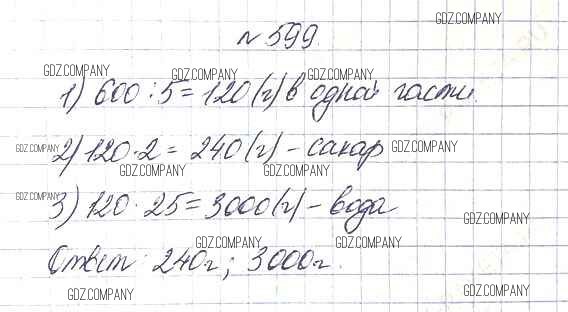 GDZ.COMPANY
№ 599
GDZ.COMPANY GDZ.COMPANY GDZ.COMPANY
1) 600 : 5 = 120 (г) в одной части.
2) 120 · 2 = 240 (г) – сахар
GDZ.COMPANY GDZ.COMPANY
GDZ.COMPANY GDZ.COMPANY
GDZ.COMPANY
3) 120 · 25 = 3000 (г) – вода
GDZ.COMPANY
GDZ.COMPANY GDZ.COMPANY
Ответ: 240 г; 3000 г.
GDZ.COMPANY GDZ.COMPANY